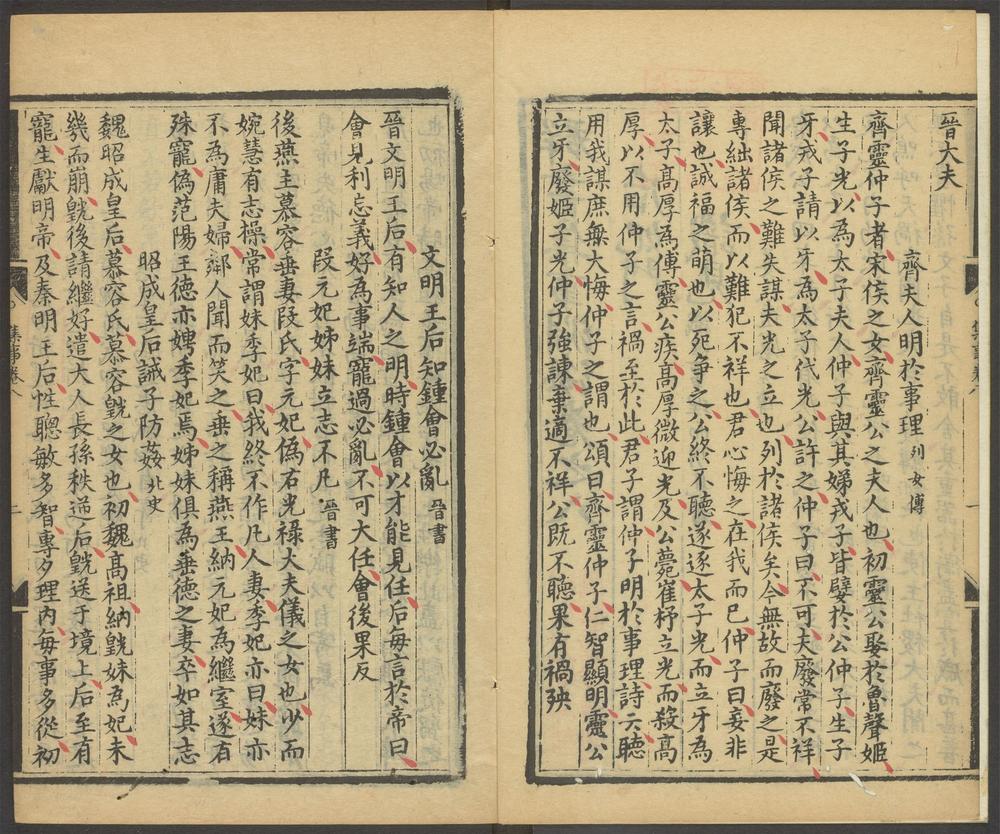 晉大夫
齊夫人明於事理 列女傳
齊靈仲子者宋侯之女齊靈公之夫人也初靈公娶於魯聲姬
生子光以為太子夫人仲子與其娣戎子皆嬖於公仲子生子
牙戎子請以牙為太子代光公許之仲子曰不可夫廢常不祥
聞諸侯之難失謀夫光之立也列於諸侯矣今無故而廢之是
專絀諸侯而以難犯不祥也君心悔之在我而已仲子曰妾非
讓也誠禍之萌也以死爭之公終不聽遂逐太子光而立牙為
太子高厚為傅靈公疾高厚微迎光及公薨崔杼立光而殺高
厚以不用仲子之言禍至於此君子謂仲子明於事理詩云聽
用我謀庶無大悔仲子之謂也頌曰齊靈仲子仁智顯明靈公
立牙廢姬子光仲子強諫棄適不祥公既不聽果有禍殃
文明王后知鍾會必亂 晉書
晉文明王后有知人之明時鍾會以才能見任后每言於帝曰
會見利忘義好為事端寵過必亂不可大任會後果反
段元妃姊妹立志不凡 晉書
後燕主慕容垂妻段氏字元妃偽右光祿大夫儀之女也少而
婉慧有志操常謂妹季妃曰我終不作凡人妻季妃亦曰妹亦
不為庸夫婦鄰人聞而笑之垂之稱燕王納元妃為繼室遂有
殊寵偽范陽王德亦娉季妃焉姊妹俱為垂德之妻卒如其志
昭成皇后誡子防姦 北史
魏昭成皇后慕容氏慕容皝之女也初魏高祖納皝妹為妃未
幾而崩皝後請繼好遣大人長孫秩逆后皝送于境上后至有
寵生獻明帝及秦明王后性聰敏多智專夕理內每事多從初
集事卷八